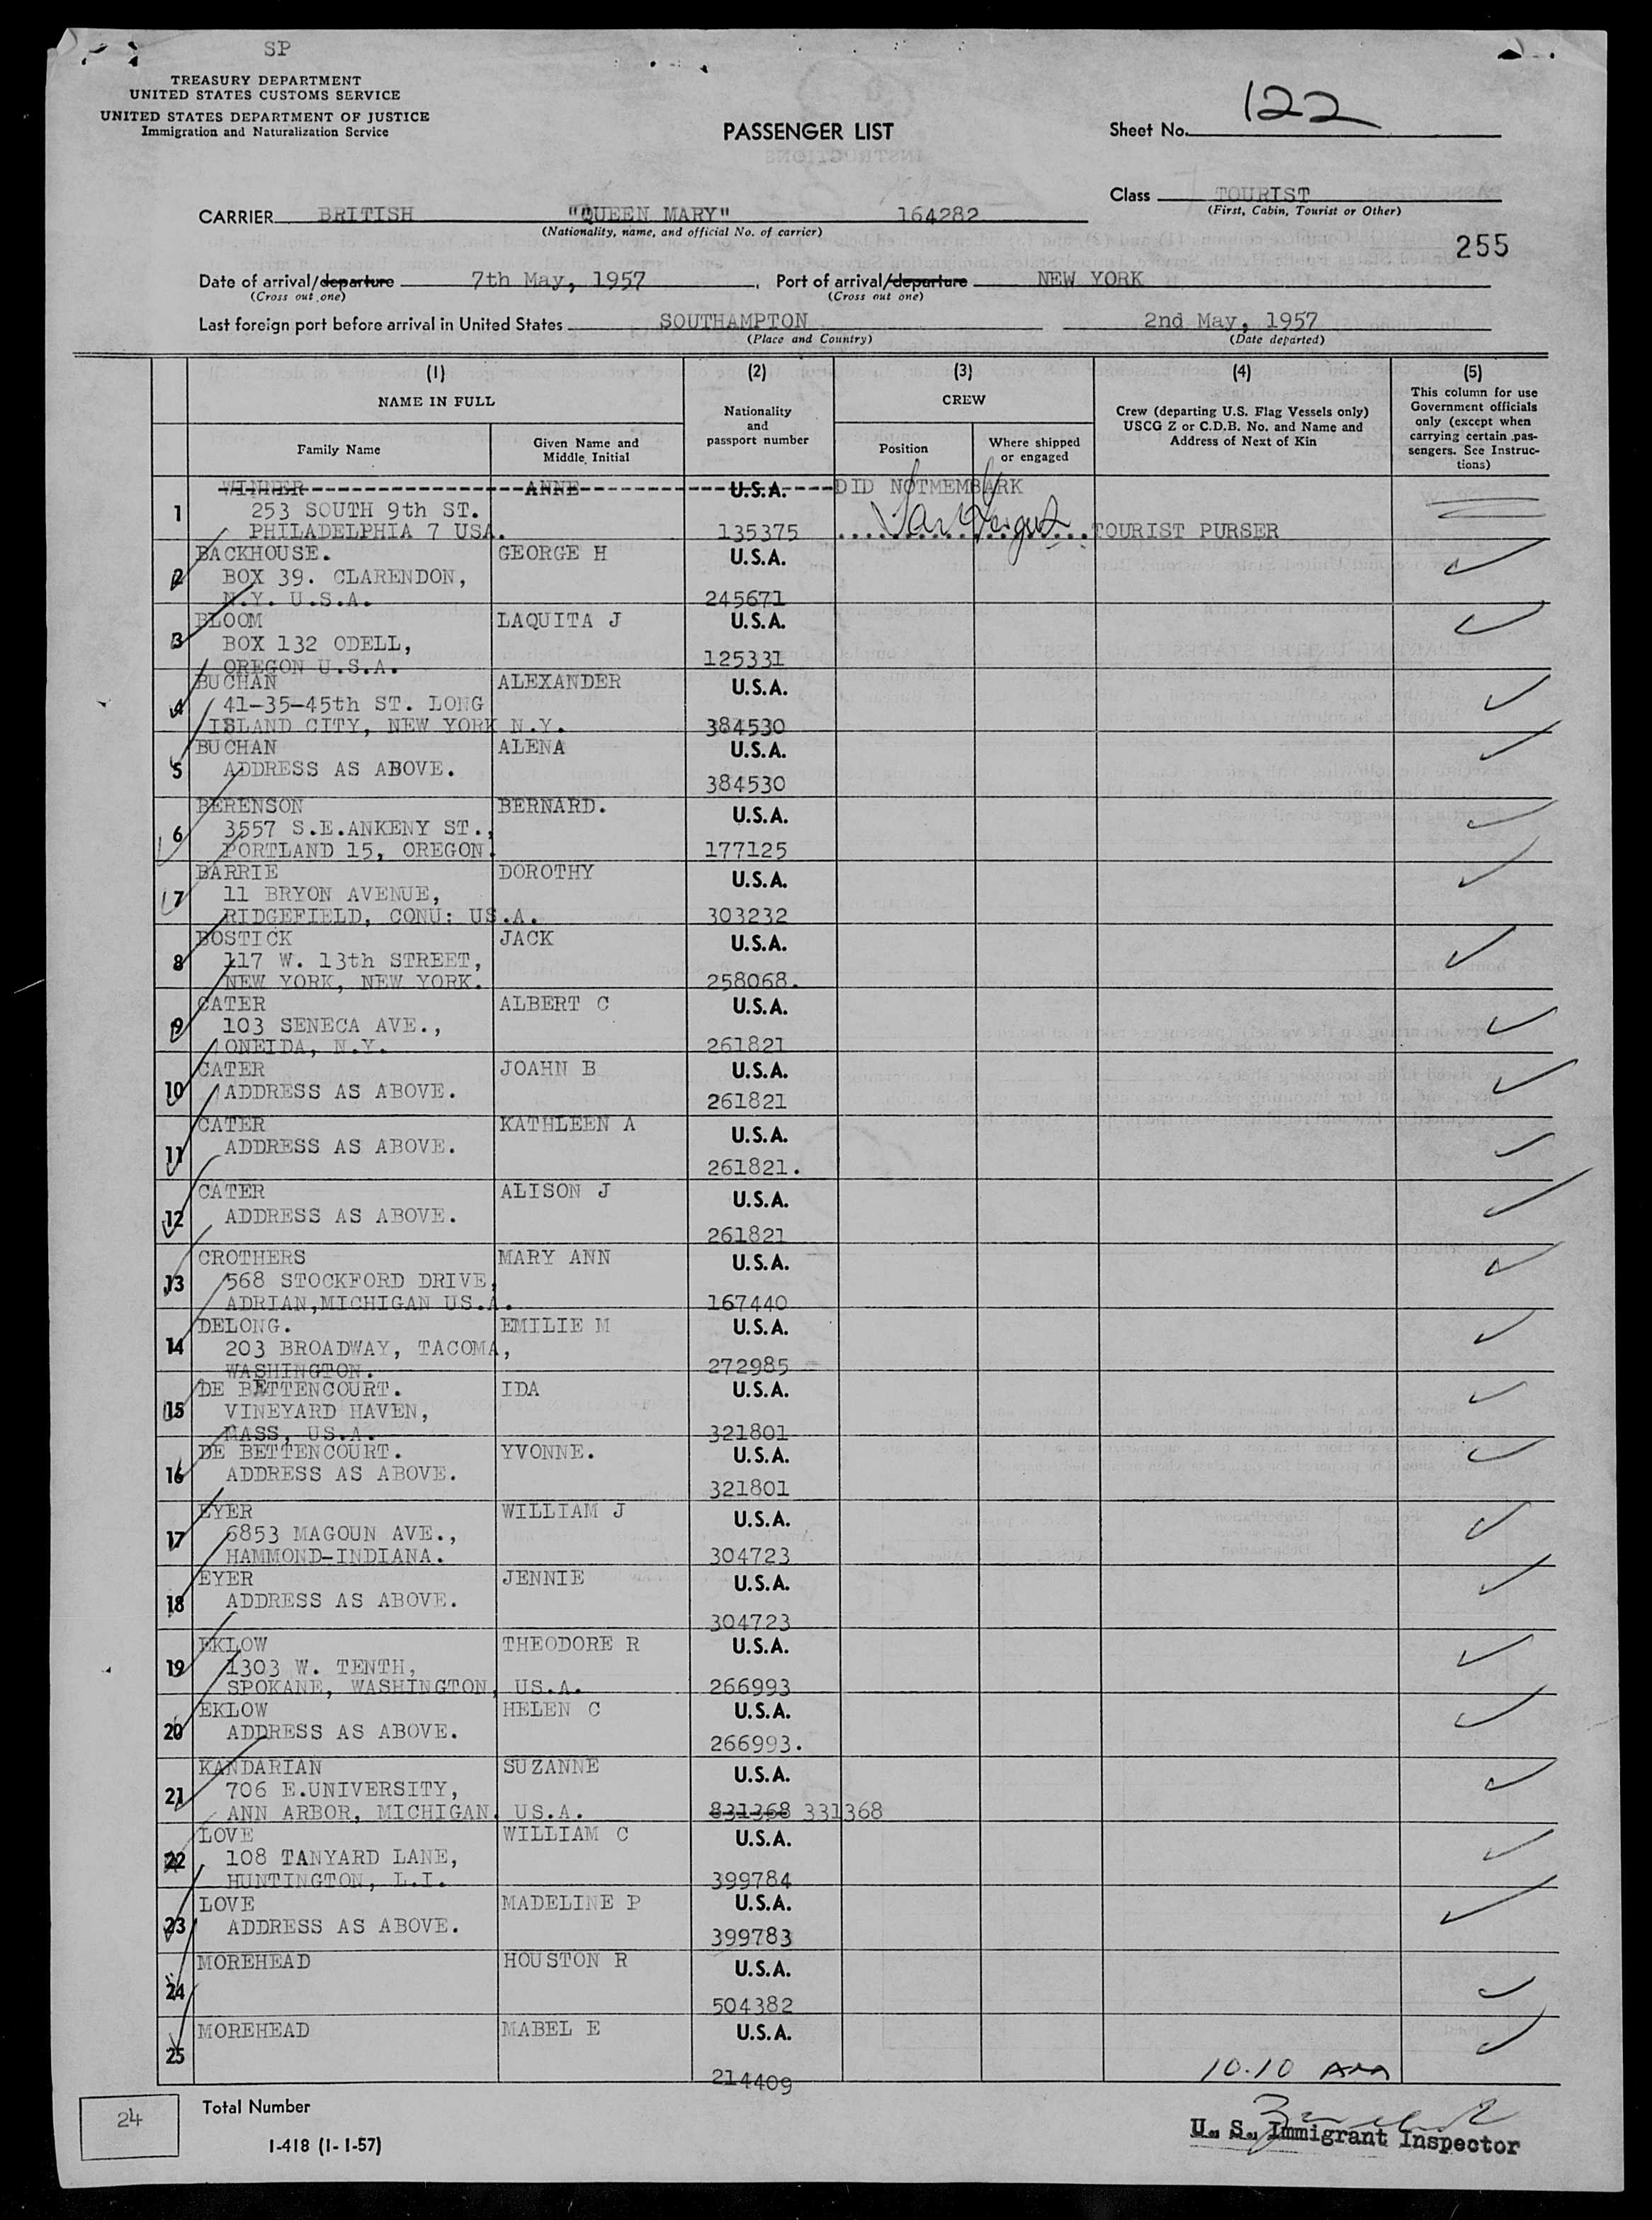 SP
TREASURY DEPARTMENT
UNITED STATES CUSTOMS SERVICE
UNITED STATES DEPARTMENT OF JUSTICE
Immigration and Naturalization Service
PASSENGER LIST
Sheet No. 122
Class TOURIST
(First, Cabin, Tourist or Other)
CARRIER BRITISH "QUEEN MARY" 164282
(Nationality, name, and official No. of carrier)
255
Date of arrival/departure 7th May, 1957. Port of arrival/departure NEW YORK
(Cross out one) (Cross out one)
Last foreign port before arrival in United States SOUTHAMPTON 2nd May, 1957
(Place and Country) (Date departed)
(1) (2) (3) (4) (5)
NAME IN FULL
Family Name
Given Name and Middle Initial
Nationality and passport number
CREW
Position
Where shipped or engaged
Crew (departing U.S. Flag Vessels only)
USCG Z or C.D.B. No. and Name and
Address of Next of Kin
This column for use
Government officials
only (except when
carrying certain pas-
sengers. See Instruc-
tions)
1 WINNER ANNE U.S.A. DID NOTMEMBARK
253 SOUTH 9th ST.
PHILADELPHIA 7 USA. 135375 TOURIST PURSER
2 BACKHOUSE. GEORGE H U.S.A.
BOX 39. CLARENDON,
N.Y. U.S.A. 245671
3 BLOOM LAQUITA J U.S.A.
BOX 132 ODELL,
OREGON U.S.A. 125331
4 BUCHAN ALEXANDER U.S.A.
41-35-45th ST. LONG
ISLAND CITY, NEW YORK N.Y. 384530
5 BUCHAN ALENA U.S.A.
ADDRESS AS ABOVE. 384530
6 BERENSON BERNARD. U.S.A.
3557 S.E.ANKENY ST.,
PORTLAND 15, OREGON. 177125
7 BARRIE DOROTHY U.S.A.
11 BRYON AVENUE,
RIDGEFIELD, CONU: US.A. 303232
8 BOSTICK JACK U.S.A.
117 W. 13th STREET,
NEW YORK, NEW YORK. 258068.
9 CATER ALBERT C U.S.A.
103 SENECA AVE.,
ONEIDA, N.Y. 261821
10 CATER JOAHN B U.S.A.
ADDRESS AS ABOVE. 261821
11 CATER KATHLEEN A U.S.A.
ADDRESS AS ABOVE. 261821.
12 CATER ALISON J U.S.A.
ADDRESS AS ABOVE. 261821
13 CROTHERS MARY ANN U.S.A.
568 STOCKFORD DRIVE,
ADRIAN,MICHIGAN US.A. 167440
14 DELONG. EMILIE M U.S.A.
203 BROADWAY, TACOMA,
WASHINGTON. 272985
15 DE BETTENCOURT. IDA U.S.A.
VINEYARD HAVEN,
MASS, US.A. 321801
16 DE BETTENCOURT. YVONNE. U.S.A.
ADDRESS AS ABOVE. 321801
17 EYER WILLIAM J U.S.A.
6853 MAGOUN AVE.,
HAMMOND-INDIANA. 304723
18 EYER JENNIE U.S.A.
ADDRESS AS ABOVE. 304723
19 EKLOW THEODORE R U.S.A.
1303 W. TENTH,
SPOKANE, WASHINGTON, US.A. 266993
20 EKLOW HELEN C U.S.A.
ADDRESS AS ABOVE. 266993.
21 KANDARIAN SUZANNE U.S.A.
706 E.UNIVERSITY,
ANN ARBOR, MICHIGAN. US.A. 831368 331368
22 LOVE WILLIAM C U.S.A.
108 TANYARD LANE,
HUNTINGTON, L.I. 399784
23 LOVE MADELINE P U.S.A.
ADDRESS AS ABOVE. 399783
24 MOREHEAD HOUSTON R U.S.A.
504382
25 MOREHEAD MABEL E U.S.A.
214409
10.10 AM
24 Total Number
I-418 (1-1-57)
U. S. Immigrant Inspector